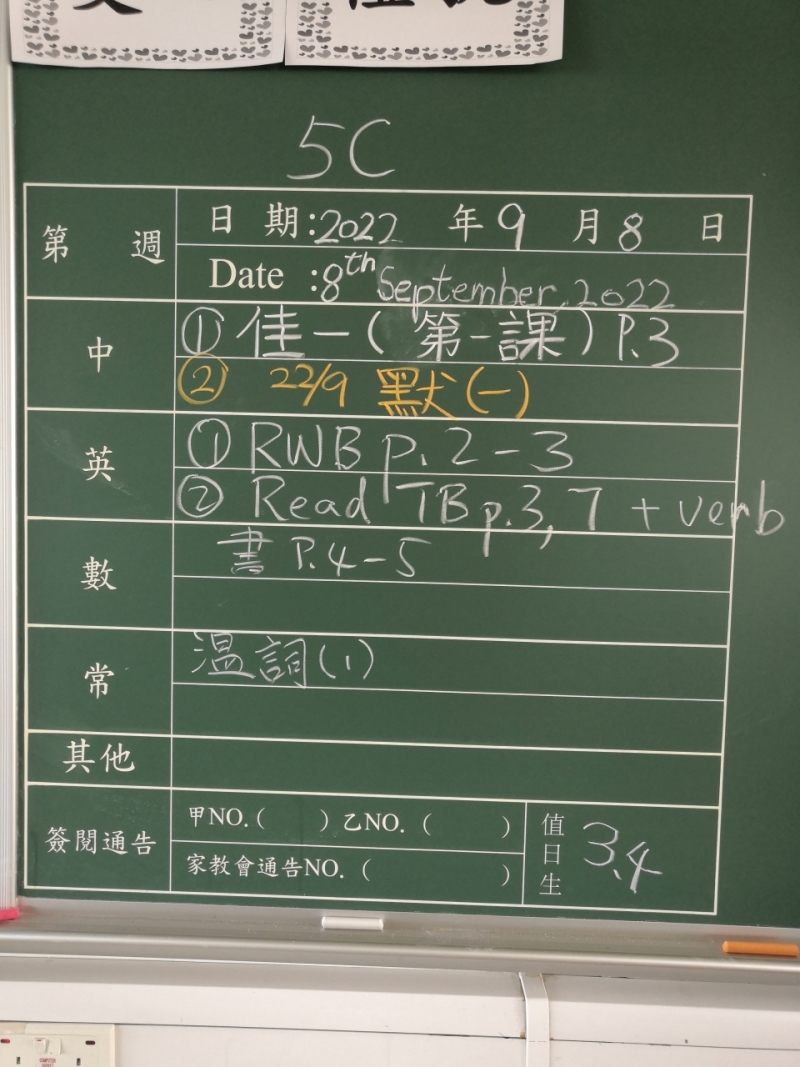 5C
第 週
日 期:2022 年 9 月 8 日
Date :8th September, 2022
中
① 佳一(第一課) P.3
② 22/9 默(一)
英
① RWB p. 2-3
② Read TB p.3, 7 + verb
數
書 P.4-5
常
溫詞(1)
其他
簽閱通告
甲NO.( ) 乙NO. ( )
家教會通告NO. ( )
值日生
3.4